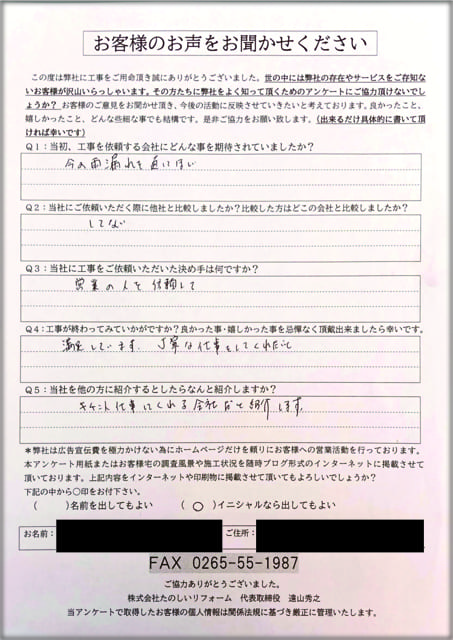 お客様のお声をお聞かせください
この度は弊社に工事をご用命頂き誠にありがとうございました。世の中には弊社の存在やサービスをご存知な
いお客様が沢山いらっしゃいます。その方たちに弊社をよく知って頂くためのアンケートにご協力頂けないで
しょうか？お客様のご意見をお聞かせ頂き、今後の活動に反映させていきたいと考えております。良かったこと、
嬉しかったこと、どんな些細な事でも結構です。是非ご協力をお願い致します。（出来るだけ具体的に書いて頂
ければ幸いです）
Q1：当初、工事を依頼する会社にどんな事を期待されていましたか？
今の雨漏れを直してほしい
Q2：当社にご依頼いただく際に他社と比較しましたか？比較した方はどこの会社と比較しましたか？
してない
Q3：当社に工事をご依頼いただいた決め手は何ですか？
営業の人を信頼して
Q4：工事が終わってみていかがですか？良かった事・嬉しかった事を忌憚なく頂戴出来ましたら幸いです。
満足しています。丁寧な仕事をしてくれたこと
Q5：当社を他の方に紹介するとしたらなんと紹介しますか？
キチント仕事してくれる会社だと紹介します。
＊弊社は広告宣伝費を極力かけない為にホームページだけを頼りにお客様への営業活動を行っております。
本アンケート用紙またはお客様宅の調査風景や施工状況を随時ブログ形式のインターネットに掲載させて
頂いております。上記内容をインターネットや印刷物に掲載させて頂いてもよろしいでしょうか？
下記の中から〇印をお付下さい。
（　）名前を出してもよい　（〇）イニシャルなら出してもよい
お名前：　ご住所：
FAX 0265-55-1987
ご協力ありがとうございました。
株式会社たのしいリフォーム　代表取締役　遠山秀之
当アンケートで取得したお客様の個人情報は関係法規に基づき厳正に管理いたします。